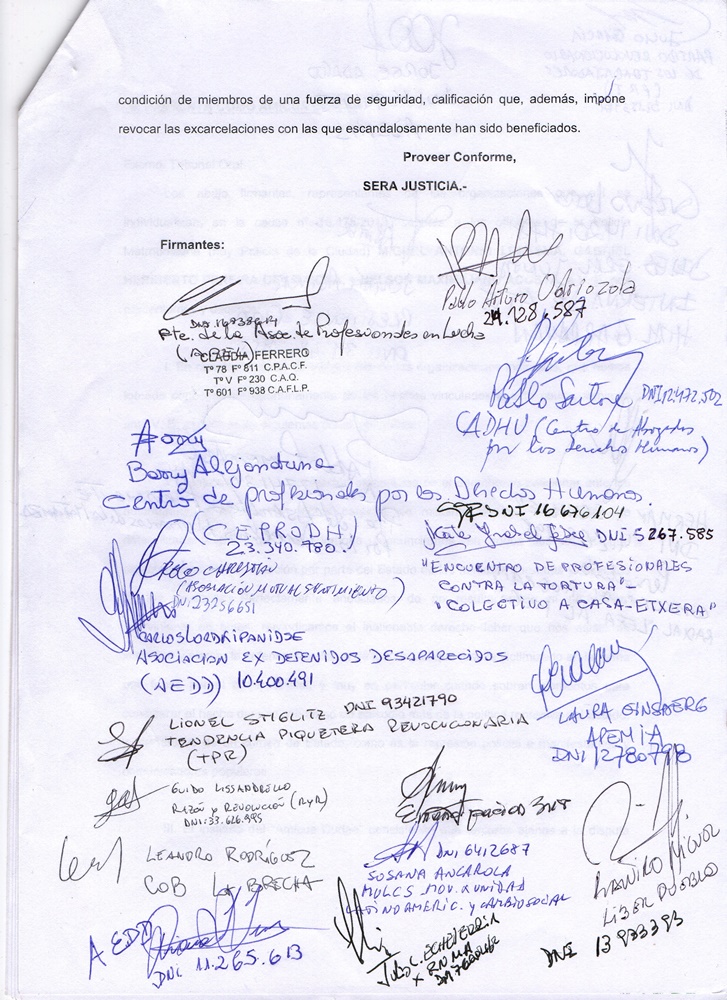 condición de miembros de una fuerza de seguridad, calificación que, además, impone
revocar las excarcelaciones con las que escandalosamente han sido beneficiados.
Proveer Conforme,
SERA JUSTICIA.-
Firmantes:
Pablo Arturo Odriozola
24.128.587
Pte. de la Asoc. de Profesionales en Lucha
CLAUDIA FERRERO
Tº 78 Fº 811 C.P.A.C.F.
TºV Fº 230 C.A.Q.
Tº 601 Fº 938 C.A.F.L.P.
Pablo
DNI 12.472.502
CADHU (Centro de Abogados
por los Derechos Humanos)
Barry Alejandrina
Centro de profesionales por los Derechos Humanos.
(CEPRODH)
DNI 16676104
23.340.780.
DNI 5267.585
"ENCUENTRO DE PROFESIONALES
CONTRA LA TORTURA"-
"COLECTIVO A CASA-ETXERA"
(ASOCIACIÓN MUTUAL SENTIMIENTO)
DNI 23256651
CARLOS LORDKIPANIDSE
ASOCIACION EX DETENIDOS DESAPARECIDOS
(AEDD) 10.400.491
LIONEL STIGLITZ DNI 93421790
TENDENCIA PIQUETERA REVOLUCIONARIA
(TPR)
LAURA GINSBERG
APEMIA
DNI 12780798
GUIDO LISSANDRELLO
RAZÓN y REVOLUCIÓN (RyR)
DNI: 33.626.995
LEANDRO RODRÍGUEZ
COB LA BRECHA
DNI 6412687
SUSANA ANCAROLA
MULCS MOV. X UNIDAD
LATINOAMERIC. y CAMBIO SOCIAL
RAMIRO
DNI 13933393
AEDD
DNI 11.265.613
JULIO C. ECHEVERRIA